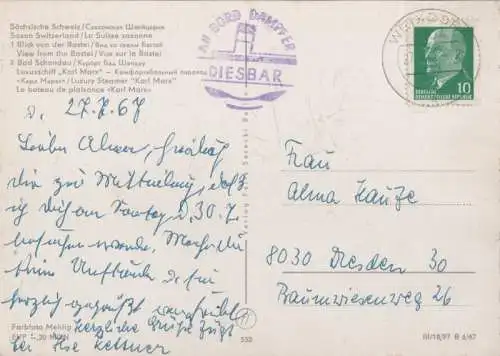 Sächsische Schweiz / Саксонская Швейцария
Saxon Switzerland / La Suisse saxonne
1 Blick von der Bastei / Вид со скалы Бастай
View from the Bastei / Vue sur la Bastei
2 Bad Schandau / Курорт Бад Шандау
Luxusschiff „Karl Marx" – Комфортабельный пароход
«Карл Маркс» / Luxury Steamer "Karl Marx"
Le bateau de plaisance «Karl Marx»
AN BORD DAMPFER
DIESBAR
10
DEUTSCHE
DEMOKRATISCHE REPUBLIK
d. 27.7.67
Liebe Alma,
die zur Mitteilung, daß
ich Dich am Sontag d. 30.7.
besuchen werde. Mache dir
keine Umstände
herzlich gegrüßt
Herzliche Grüße
Ilse Kettner
Frau
Alma Hauffe
8030 Dresden 30
Baumwiesenweg 26
Farbfoto Mehlig
EVP –,20 MDN
533
III/18/97 B 6/67